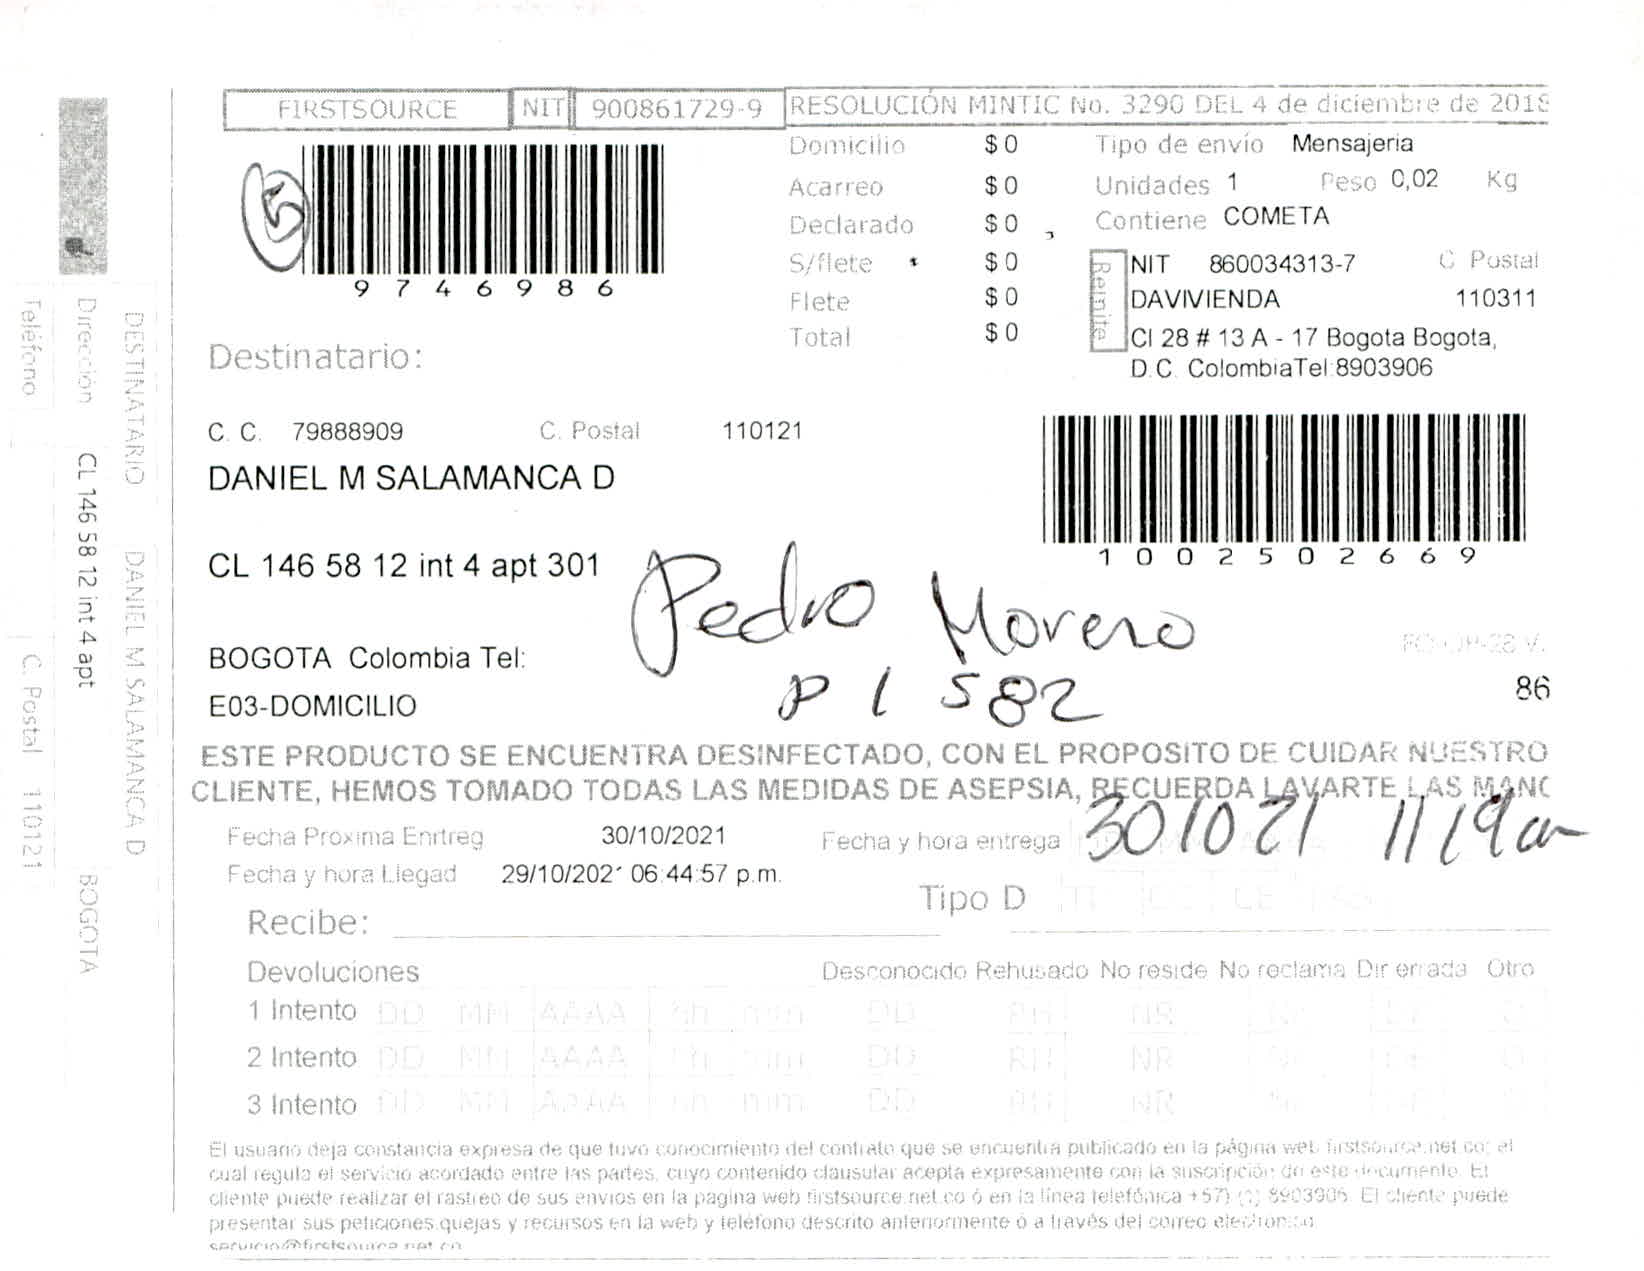 FIRSTSOURCE NIT 900861729-9 RESOLUCIÓN MINTIC No. 3290 DEL 4 de diciembre de 2018
5
9746986
Domicilio $ 0
Acarreo $ 0
Declarado $ 0
S/flete $ 0
Flete $ 0
Total $ 0
Tipo de envío Mensajeria
Unidades 1 Peso 0,02 Kg
Contiene COMETA
Remite
NIT 860034313-7 C Postal
DAVIVIENDA 110311
Cl 28 # 13 A - 17 Bogota Bogota,
D.C. ColombiaTel:8903906
Destinatario:
C. C. 79888909 C. Postal 110121
DANIEL M SALAMANCA D
1002502669
CL 146 58 12 int 4 apt 301
Pedro Moreno
P 1 582
BOGOTA Colombia Tel:
86
E03-DOMICILIO
ESTE PRODUCTO SE ENCUENTRA DESINFECTADO, CON EL PROPOSITO DE CUIDAR NUESTRO
CLIENTE, HEMOS TOMADO TODAS LAS MEDIDAS DE ASEPSIA, RECUERDA LAVARTE LAS MANO
Fecha Proxima Enrtreg 30/10/2021 Fecha y hora entrega 301021 1119am
Fecha y hora Llegad 29/10/2021 06:44:57 p.m.
Tipo D
Recibe:
Devoluciones Desconocido Rehusado No reside No reclama Dir errada Otro
1 Intento DD MM AAAA hh mm DD RH NR
2 Intento DD MM AAAA hh mm DD RH NR
3 Intento DD MM AAAA hh mm DD RH NR
El usuario deja constancia expresa de que tuvo conocimiento del contrato que se encuentra publicado en la página web firstsource.net.co; el
cual regula el servicio acordado entre las partes, cuyo contenido clausular acepta expresamente con la suscripción de este documento. El
cliente puede realizar el rastreo de sus envios en la pagina web firstsource.net.co ó en la línea telefónica +57) (1) 8903906. El cliente puede
presentar sus peticiones quejas y recursos en la web y teléfono descrito anteriormente ó a través del correo electronico
servicio@firstsource.net.co
DESTINATARIO DANIEL M SALAMANCA D
Dirección CL 146 58 12 int 4 apt BOGOTA
Teléfono C. Postal 110121